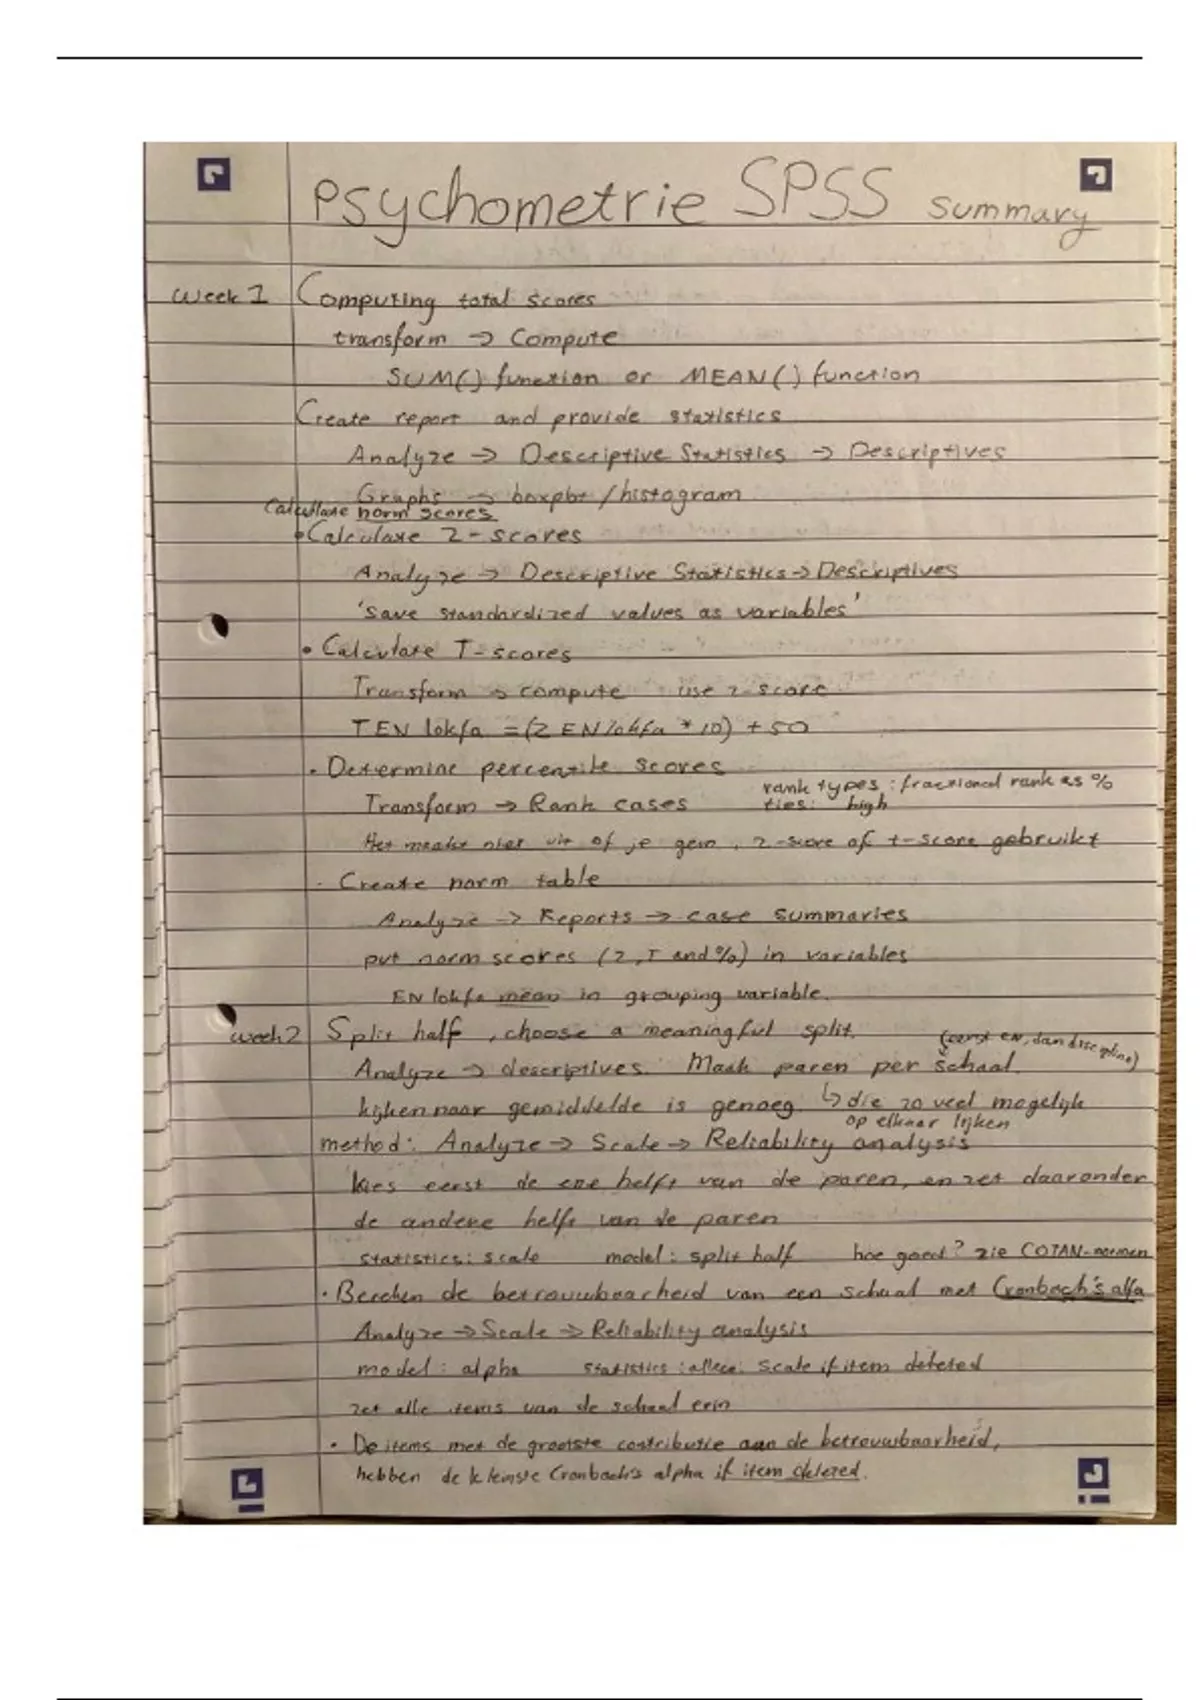 Psychometrie SPSS summary
Week 1 Computing total scores
transform → Compute
SUM() function or MEAN() function
Create report and provide statistics
Analyze → Descriptive Statistics → Descriptives
Graphs → boxplot / histogram
Calculate norm scores
• Calculate Z-scores
Analyze → Descriptive Statistics → Descriptives
'save standardized values as variables'
• Calculate T-scores
Transform → compute use z-score
TEN lokfa = (ZENlokfa * 10) + 50
• Determine percentile scores
rank types: fractional rank as %
Transform → Rank cases ties: high
Het maakt niet uit of je gem, z-score of t-score gebruikt
• Create norm table
Analyze → Reports → case summaries
put norm scores (Z, T and %) in variables
EN lokfa mean in grouping variable.
Week 2 Split half, choose a meaningful split.
(eerst EN, dan discipline)
Analyze → descriptives. Maak paren per schaal.
kijken naar gemiddelde is genoeg ↳ die zo veel mogelijk
op elkaar lijken
method: Analyze → Scale → Reliability analysis
kies eerst de ene helft van de paren, en zet daaronder
de andere helft van de paren
statistics: scale model: split half hoe goed? zie COTAN-normen
• Bereken de betrouwbaarheid van een schaal met Cronbach's alfa
Analyze → Scale → Reliability analysis
model: alpha statistics: alleen: scale if item deleted
zet alle items van de schaal erin
• De items met de grootste contributie aan de betrouwbaarheid,
hebben de kleinste Cronbach's alpha if item deleted.